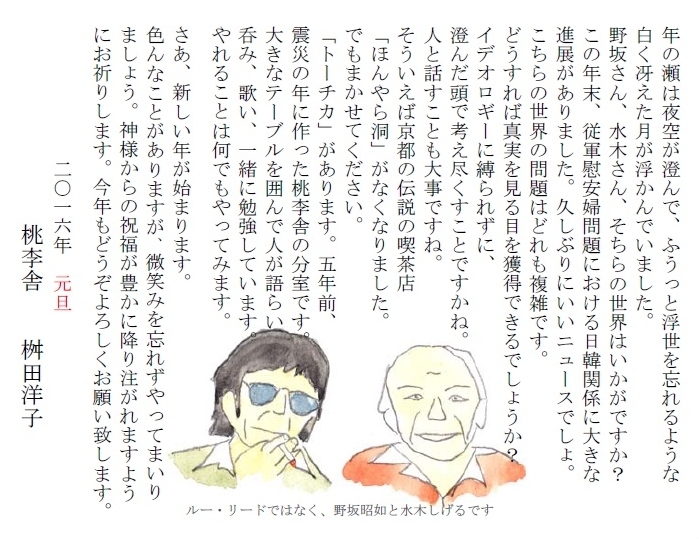 年の瀬は夜空が澄んで、ふうっと浮世を忘れるような
白く冴えた月が浮かんでいました。
野坂さん、水木さん、そちらの世界はいかがですか?
この年末、従軍慰安婦問題における日韓関係に大きな
進展がありました。久しぶりにいいニュースでしょ。
こちらの世界の問題はどれも複雑です。
どうすれば真実を見る目を獲得できるでしょうか?
イデオロギーに縛られずに、
澄んだ頭で考え尽くすことですかね。
人と話すことも大事ですね。
そういえば京都の伝説の喫茶店
「ほんやら洞」がなくなりました。
でもまかせてください。
「トーチカ」があります。五年前、
震災の年に作った桃李舎の分室です。
大きなテーブルを囲んで人が語らい、
呑み、歌い、一緒に勉強しています。
やれることは何でもやってみます。
さあ、新しい年が始まります。
色んなことがありますが、微笑みを忘れずやってまいり
ましょう。神様からの祝福が豊かに降り注がれますよう
にお祈りします。今年もどうぞよろしくお願い致します。
二〇一六年 元旦
桃李舎 桝田洋子
ルー・リードではなく、野坂昭如と水木しげるです